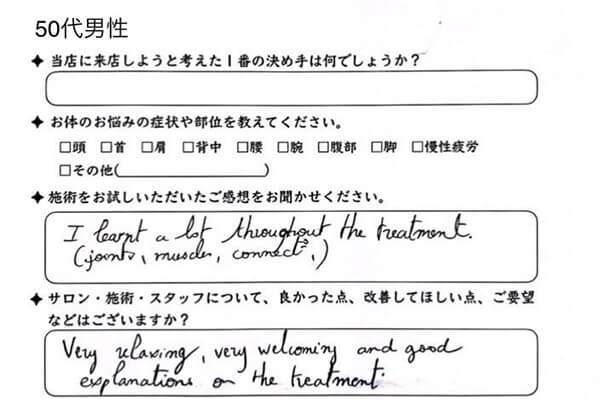 50代男性
✦ 当店に来店しようと考えた1番の決め手は何でしょうか?
✦ お体のお悩みの症状や部位を教えてください。
□頭 □首 □肩 □背中 □腰 □腕 □腹部 □脚 □慢性疲労
□その他( )
✦ 施術をお試しいただいたご感想をお聞かせください。
I learnt a lot throughout the treatment.
(joints, muscles, connect°,)
✦ サロン・施術・スタッフについて、良かった点、改善してほしい点、ご要望
などはございますか?
Very relaxing, very welcoming and good
explanations on the treatment.